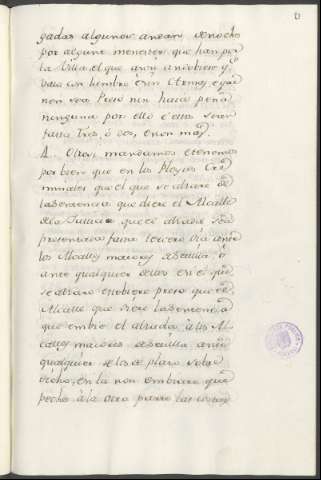 gadas algunos anean de noche
por algunt menester que han por
la Villa el que assi anduviere y
vaia con lumbre ó sin
non sea Preso nin haia pena
ninguna por ello é estos sean
fasta Tres, ó dos, é non mas
A. Otrosi mandamos é tenemos
por bien que en los Pleytos Cri
minales que el que se alzare de
la Sentencia que diere el Alcalle
de la Justicia que el alzada sea
presentada fasta tercero dia ante
los Alcalles maiores de Sevilla, ó
ante qualquier dellos en el que
se alzare estobiere preso que el
Alcalle que diere la Sentencia
que embie el alzada á los Al
calles maiores de Sevilla, ante
qualquier de los de plazo sobre
dicho, en la non embiare que
peche á la otra parte las costas